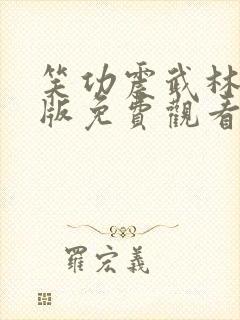 笑功震武林
版免費觀看
羅宏義